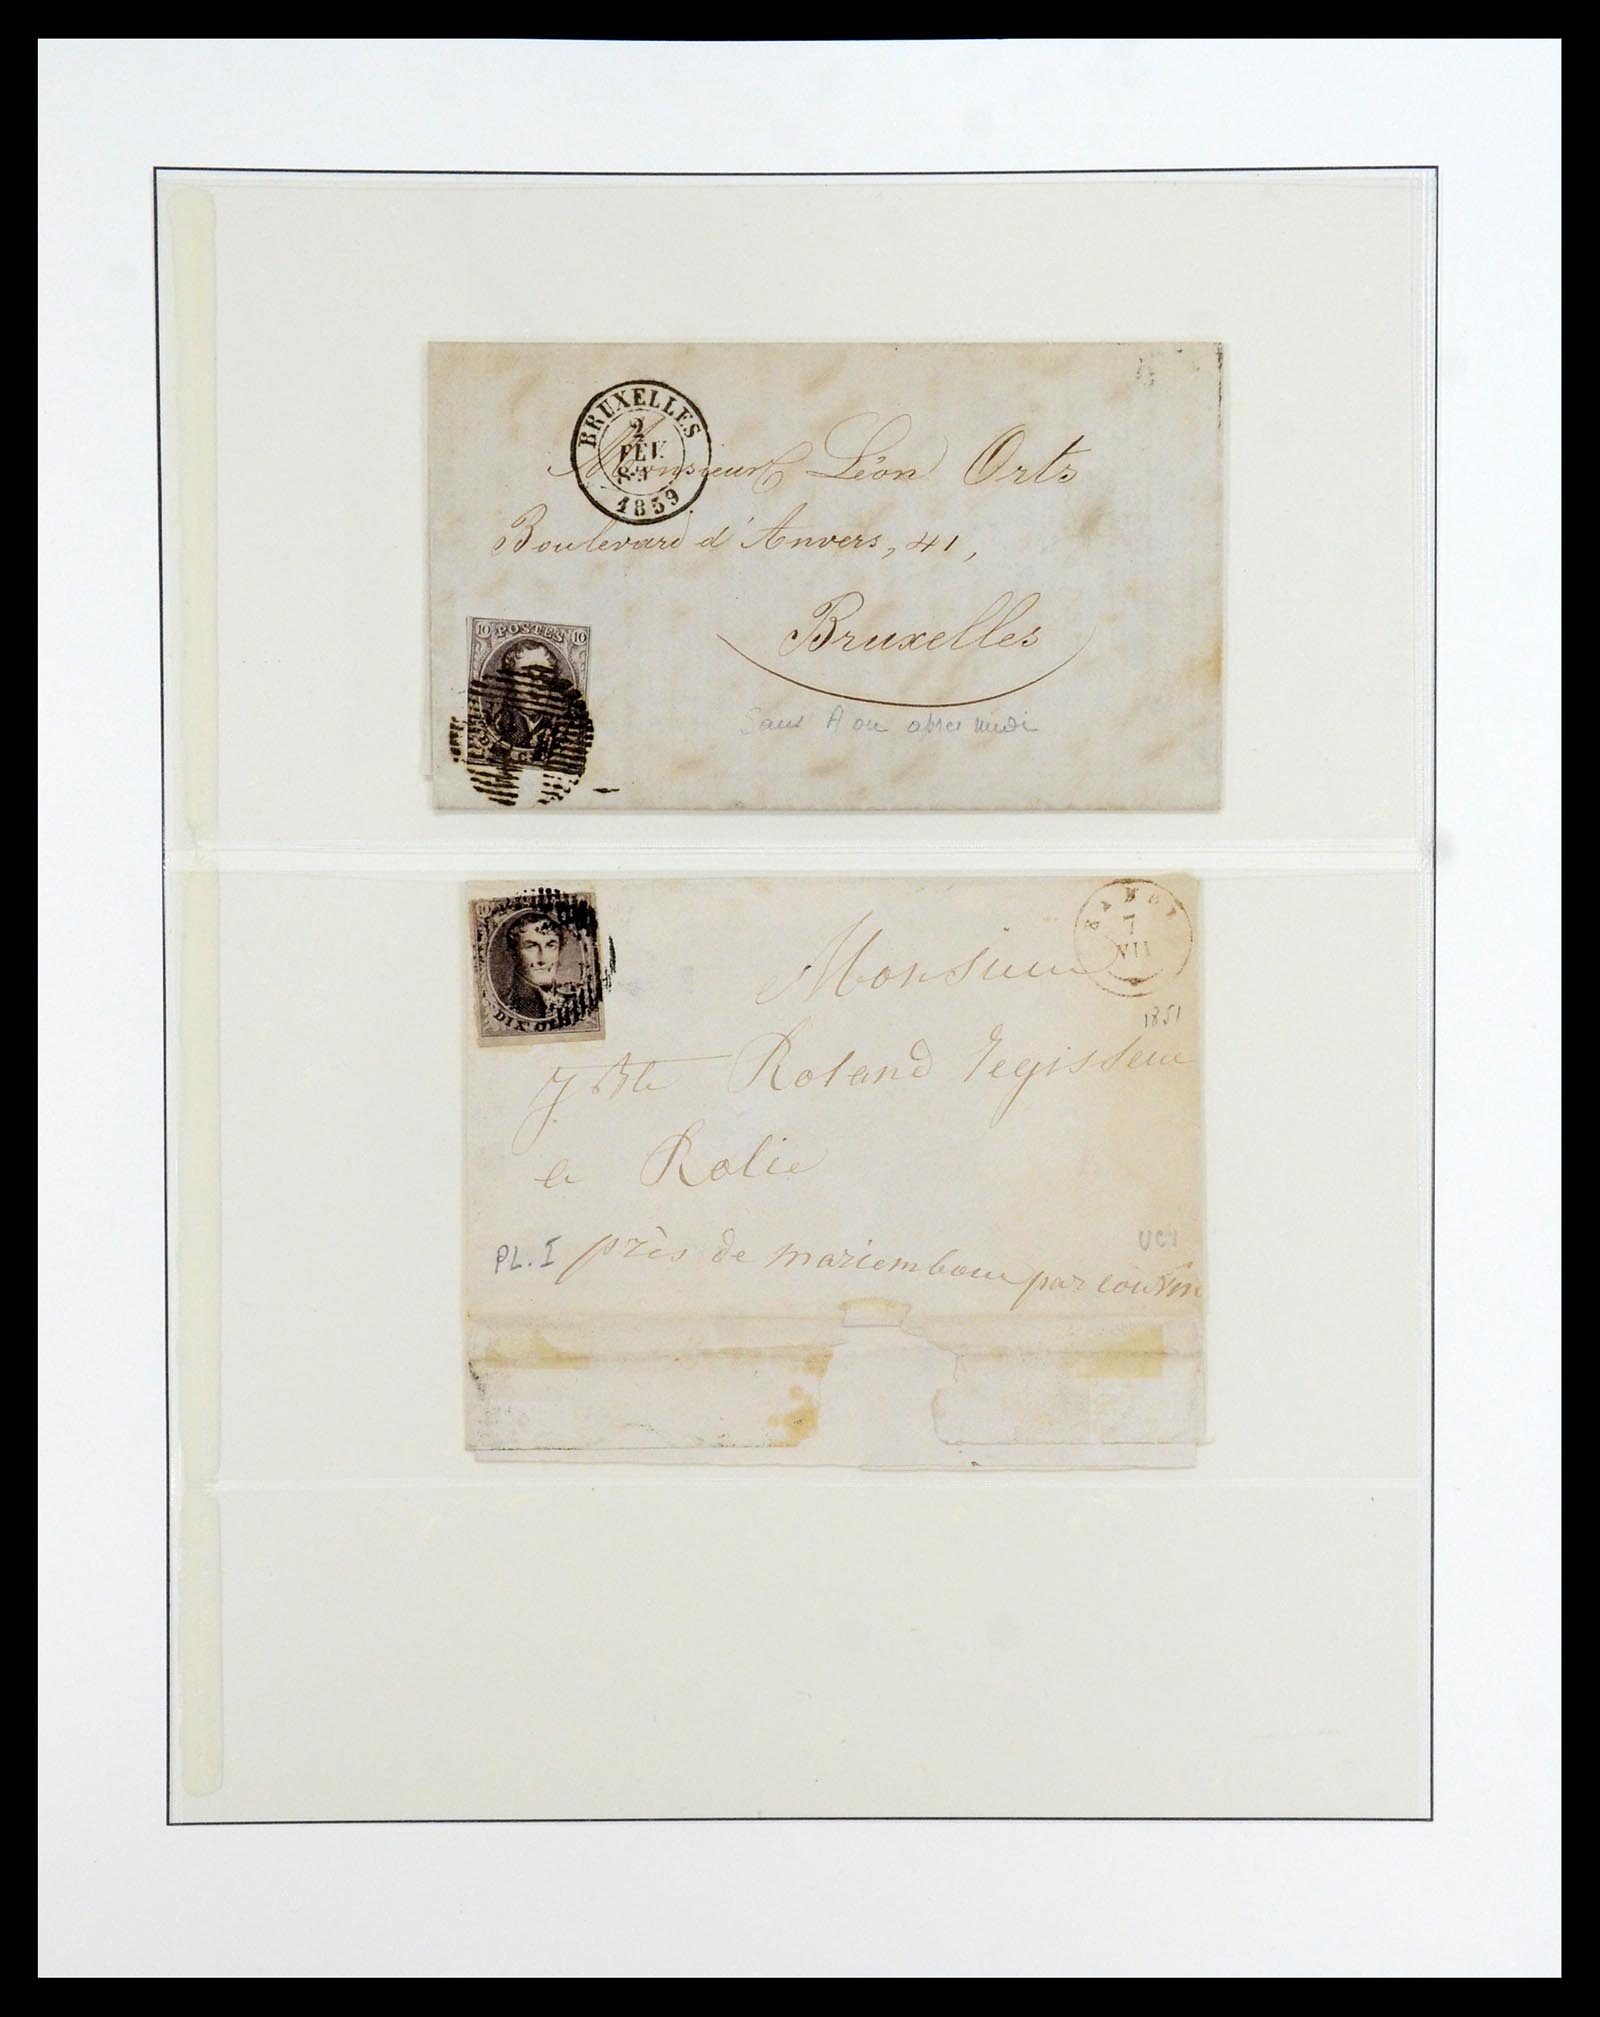 BRUXELLES
2
FÉV.
1859
Monsieur Léon Orts
Boulevard d'Anvers, 41,
Bruxelles
10 POSTES 10
Sans A ou apres midi
10
DIX
NAMUR
7
VII
1851
Monsieur
Roland regisseur
a Rolie
PL. I près de mariembour par couvin